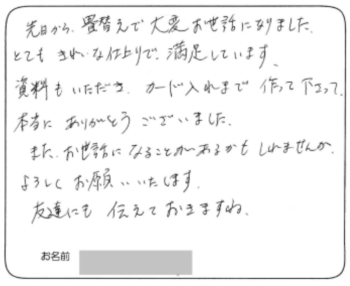 先日から、畳替えで大変お世話になりました。
とてもきれいな仕上りで、満足しています。
資料もいただき、カード入れまで作って下さって、
本当にありがとうございました。
また、お世話になることがあるかもしれませんが、
よろしくお願いいたします。
友達にも伝えておきますね。
お名前